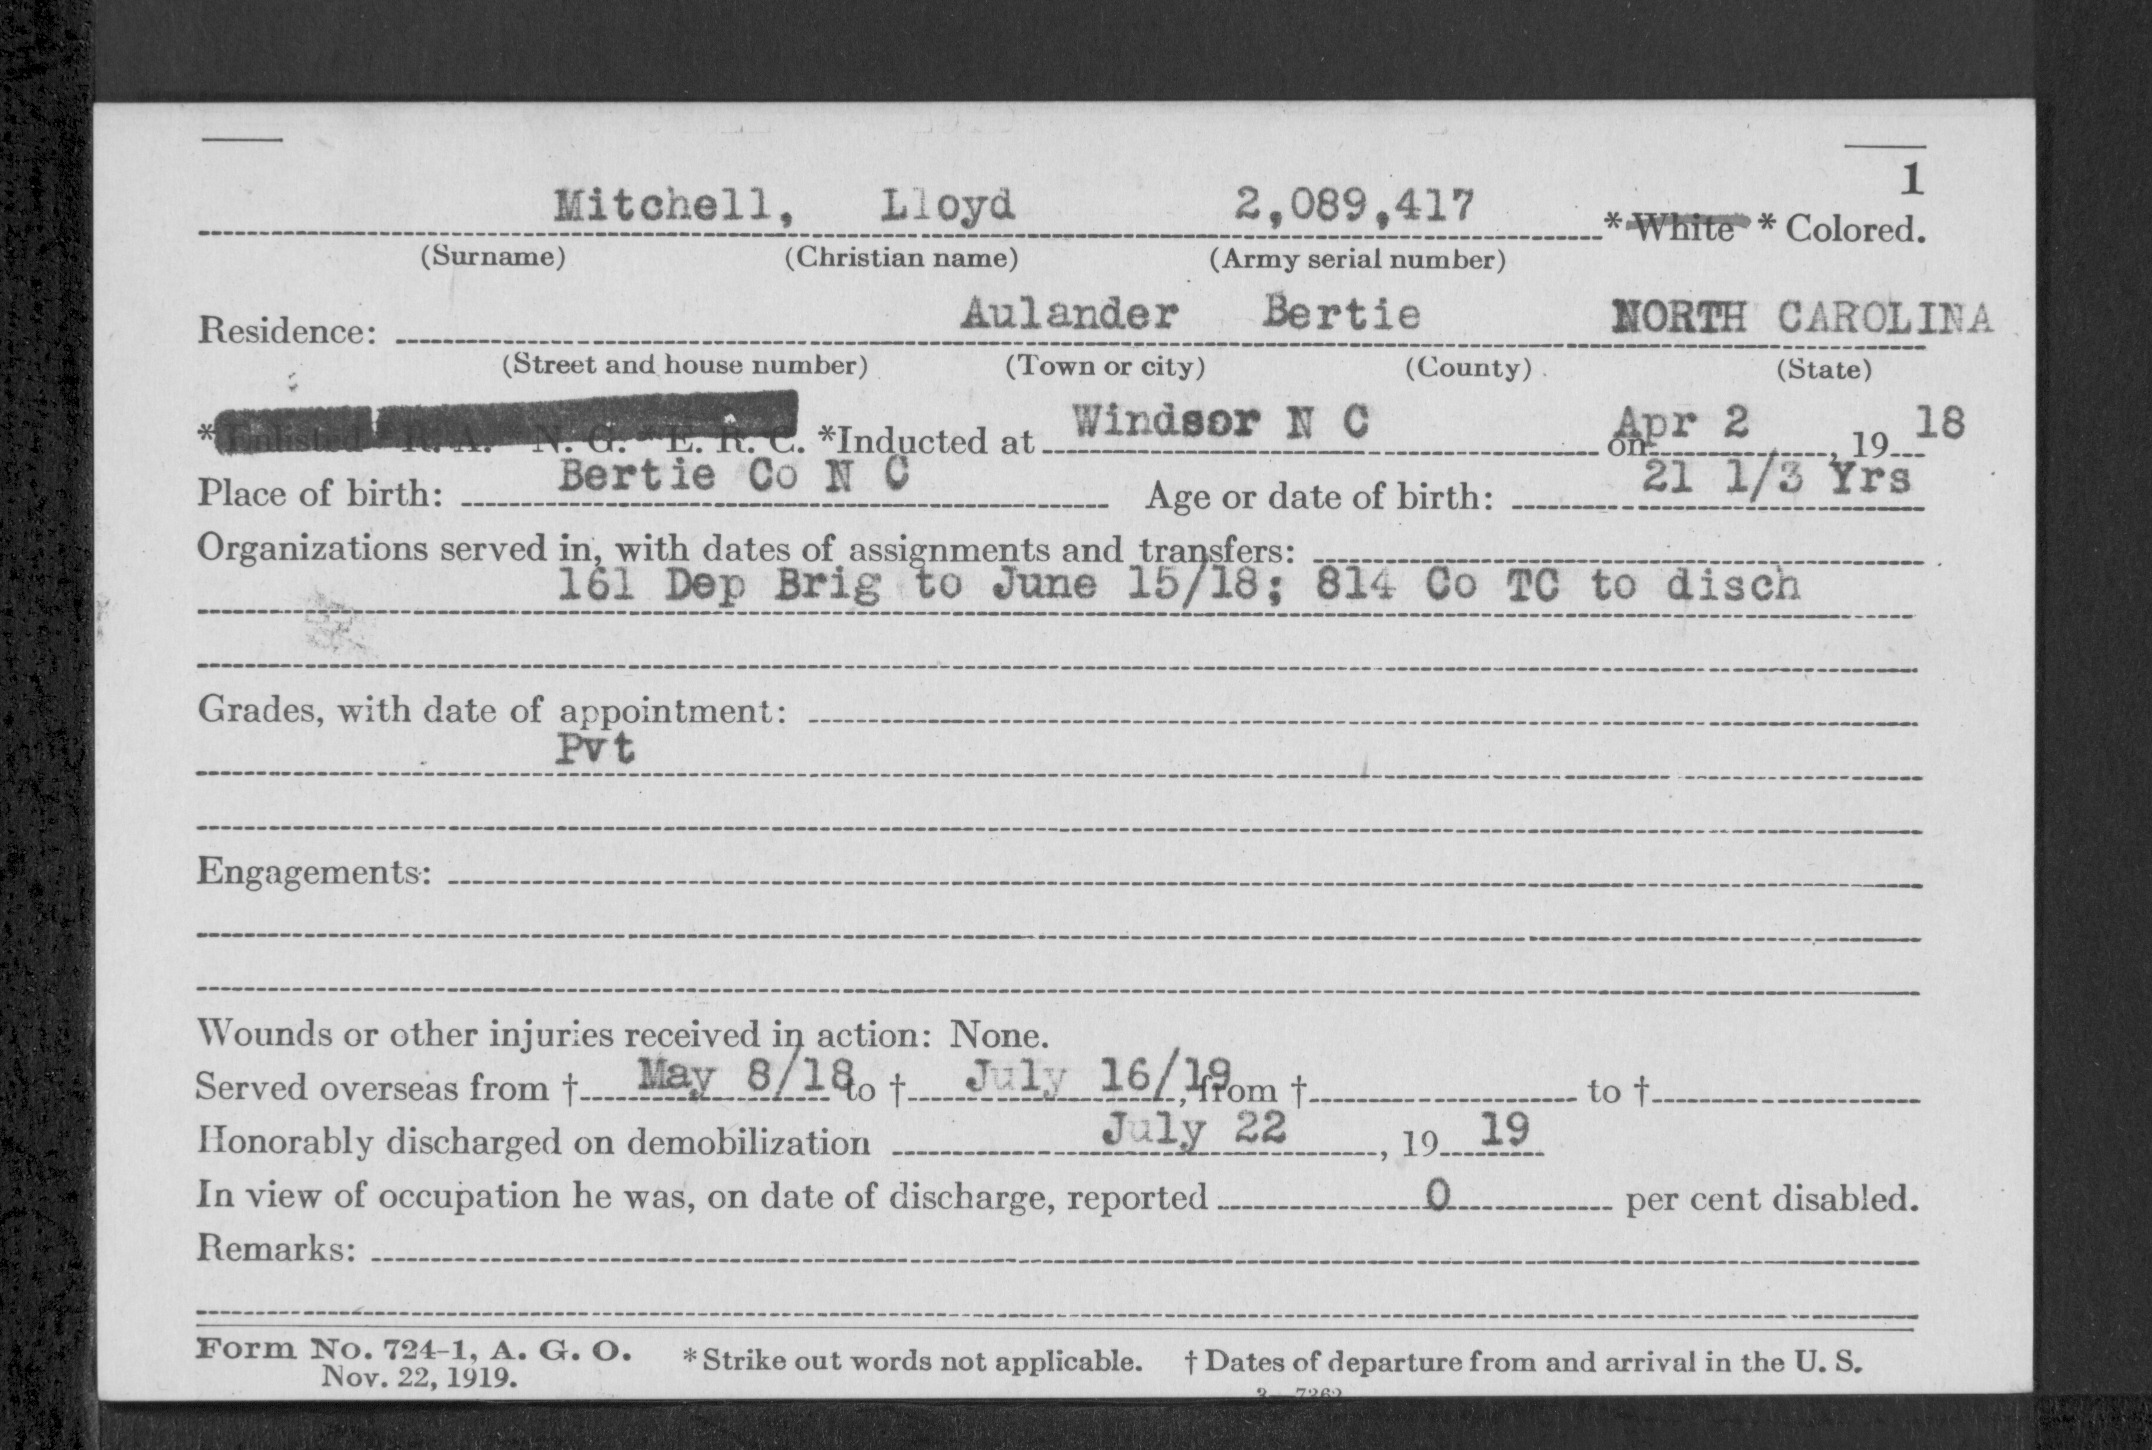 1
Mitchell, Lloyd 2,089,417 *White * Colored.
(Surname) (Christian name) (Army serial number)
Residence: Aulander Bertie NORTH CAROLINA
(Street and house number) (Town or city) (County) (State)
*Enlisted *R. A. *N. G. *E. R. C. *Inducted at Windsor N C on Apr 2, 19 18
Place of birth: Bertie Co N C Age or date of birth: 21 1/3 Yrs
Organizations served in, with dates of assignments and transfers:
161 Dep Brig to June 15/18; 814 Co TC to disch
Grades, with date of appointment:
Pvt
Engagements:
Wounds or other injuries received in action: None.
Served overseas from † May 8/18 to † July 16/19, from † to †
Honorably discharged on demobilization July 22, 19 19
In view of occupation he was, on date of discharge, reported 0 per cent disabled.
Remarks:
Form No. 724-1, A. G. O. * Strike out words not applicable. † Dates of departure from and arrival in the U. S.
Nov. 22, 1919.